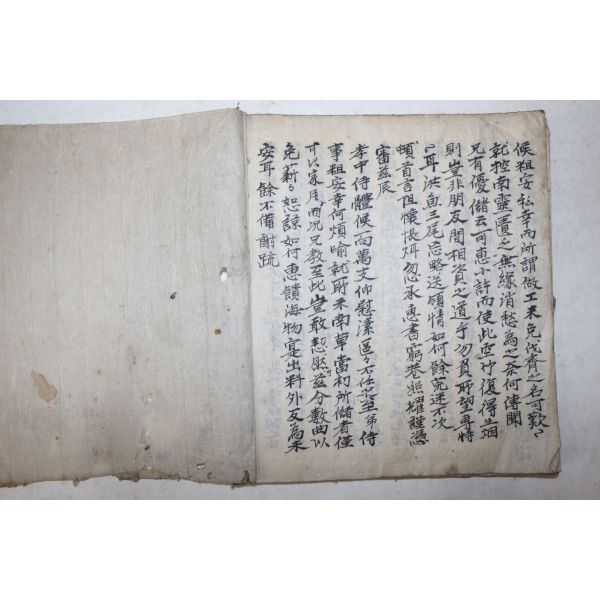 候粗安私幸而所謂做工未免伐齊之名可歎〻
就控南靈匱乏無緣消愁爲之奈何傳聞
兄有優儲云可惠小許而使此空竹復得生烟
則豈非朋友間相資之道乎勿負耶望專恃
〻耳洪魚三尾忘略送領情如何餘荒迷不次
頓首言阻懷悵炯忽承惠書窮巷照耀謹憑
審玆辰
孝中侍體候一向萬支仰慰溸區〻不任葉至弟侍
事粗安幸何煩喻就耶來南草當初所儲者僅
可以家用而况兄教至此豈敢恝然玆分數曲以
免薪〻恕諒如何惠饋海物寔出料外反爲未
安耳餘不備謝疏